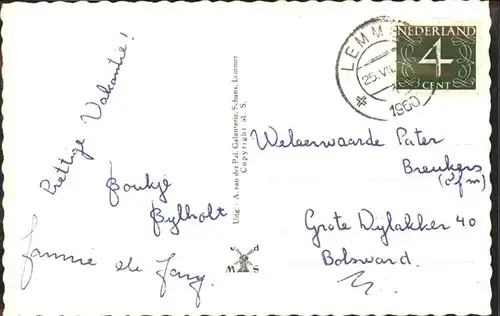 Prettige Vakantie!
Boukje
Bylholt
Jannie de Jong.
Uitg.: A. van der Pal, Galanterie, Schans, Lemmer
Copyright M. S.
v d
M S
LEMMER
25.VII.
1960
NEDERLAND
4
CENT
Weleerwaarde Pater
Breukers
(o.f.m)
Grote Dijlakker 40
Bolsward.